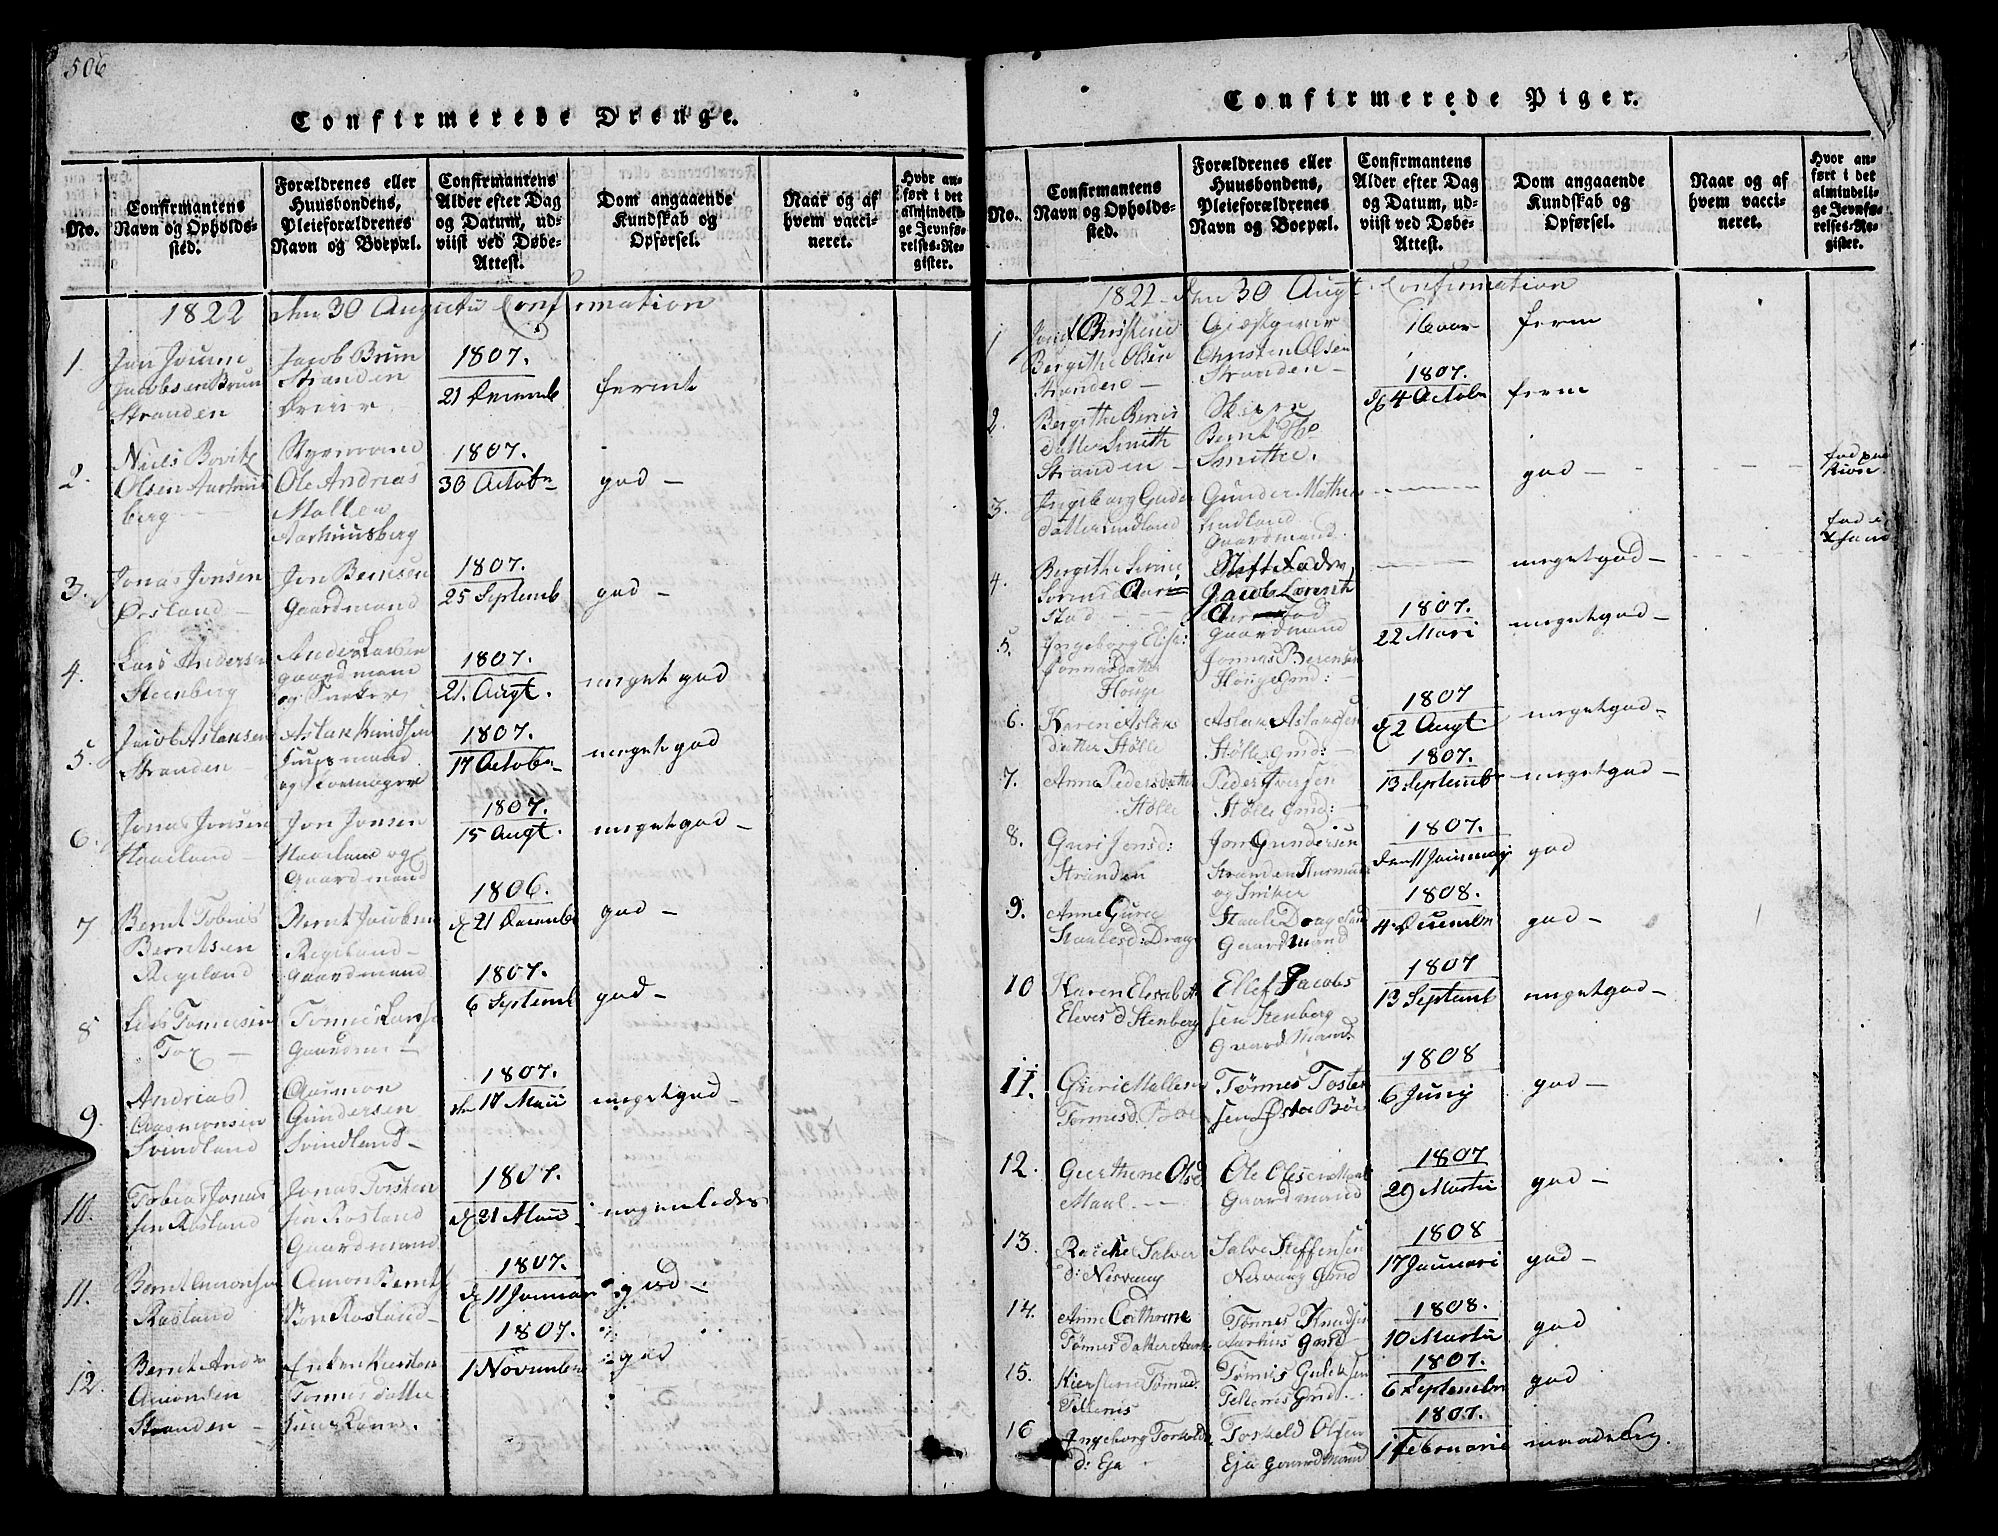 506
Confirmerede Drenge.
No.
Confirmantens
Navn og Opholds-
sted.
Forældrenes eller
Huusbondens,
Pleieforældrenes
Navn og Boepæl.
Confirmantens
Alder efter Dag
og Datum, ud-
viist ved Døbe-
Attest.
Dom angaaende
Kundskab og
Opførsel.
Naar og af
hvem vacci-
neret.
Hvor an-
ført i det
almindeli-
ge Jevnfø-
relses-Re-
gister.
1822 den 30 Augusti Confirmation
1.
Jacobsen Brun
Stranden
Jacob Brun
Stranden
1807.
21 Decemb
fermt
2.
Niels
Olsen Aarhuus
berg
Styrmand
Ole Andreas
Mollen
Aarhuusberg
1807.
30 Octobr
god –
3.
Jonas Jonsen
Øesland –
Jon Bernsen
Gaardmand
1807.
25 Septemb
god –
4.
Lars Andersen
Steenberg
Anders Larsen
gaardmand
og Sneker
1807.
21. Augt.
meget god
5.
Jacob Aslaksen
Stranden
Aslak Knudsen
Huusmand
og Skoemager
1807.
17 Octobr
meget god
6.
Jonas Jonsen
Haaeland –
Jon Jonsen
Haaeland og
Gaardmand
1807.
15 Augt.
meget god –
7
Bernt Tobias
Berntsen
Regeland
Bernt Jacobsen
Regeland –
Gaardmand
1806.
d 21 Decembr
god –
8
Lars Tønnesen
Tox –
Tønnes Larsen
1807.
6 Septemb
god –
9.
Andreas
Aasmonsen
Svindland
Aasmon
Gundersen
Svindland –
1807.
den 17 Maii
meget god –
10.
Tobias Jonas
sen Rosland
Jonas Torsten
sen Rosland
Gaardmand
1807.
d 21 Maii
nogenledes
11.
Bernt Amonsen
Rosland
Amon Bernt
sen Rosland
1807.
d 11 Januar
god –
12.
Bernt Andr
Amonsen
Stranden –
Tønnesdatter
1807.
1 Novembr
god
Confirmerede Piger.
No.
Confirmantens
Navn og Opholds-
sted.
Forældrenes eller
Huusbondens,
Pleieforældrenes
Navn og Boepæl.
Confirmantens
Alder efter Dag
og Datum, ud-
viist ved Døbe-
Attest.
Dom angaaende
Kundskab og
Opførsel.
Naar og af
hvem vacci-
neret.
Hvor an-
ført i det
almindeli-
ge Jevnfø-
relses-Re-
gister.
1822 den 30 Augt. Confirmation
1
Christine
Bergithe Olsen
Strandene –
Giestgiver
Christen Olsen
Stranden –
16 aar
ferm
2.
Bergithe Bernts
datter Smith
Stranden –
Skipper
Bernt
Smith.
1807.
d 4 Octobr
ferm
3.
Ingeborg Gunder
datter Lindland
Gunder Mathies
Lindland
Gaardmand.
god –
4.
Bergithe
Sørens
Stiffader
Jacob Lorentz
meget god –
5.
Ingeborg Else
Jonnasdatter
Houge
Gaardmand
Jonnas Berensen
Houge Gmd:
1807.
22 Mari
meget god –
6.
Karen Aslaks
datter Stølle
Aslak Aslaksen
Stølle gmd: –
1807
d 2 Augt
meget god –
7.
Anna Pedersdatter
Stølle
Peder Iversen
Stølle gmd: –
1807.
13 Septemb
meget god –
8.
Guri Jonsd:
Stranden
Jon Gundersen
Stranden Huusmand
og Sniker
1807.
den 11 Januarij
god
9.
Anne Gurie
Staalesd: Drage
Staale Drageland
Gaardmand
1808.
4 Decembr
god –
10
Karen Elisabeth
Elevesd Stenberg
Ellef Jacobs
sen Stenberg
Gaardmand.
1807
13 Septemb
meget god –
11.
Guri Mallene
Tønnesd. Bøe
Tønnes Tosten
sen Øster Bøe
1808
6 Junij
god –
12.
Geerthene Olsd
Maal. –
Ole Olesen Maal
Gaardmand
1807
29 Martii
god –
13.
Rachel Salve
d: Nesvaag
Salve Steffensen
Nesvaag Gmd
1808
17 Januari
god –
14.
Anne Cathrine
Tønnes datter Aark
Tønnes Knudsen
Aarhus Gmd –
1808.
10 Martii
god
15.
Kierstine Tønnesd.
Tellenis
Tønnes Guldksen
Tellenis Gmd.
1807.
6 Septembr
god
16
Ingeborg Torkilds
d: Eja
Torkeld Olsen
Eja Gaardmand
1807.
1 Februarii
maadelig.